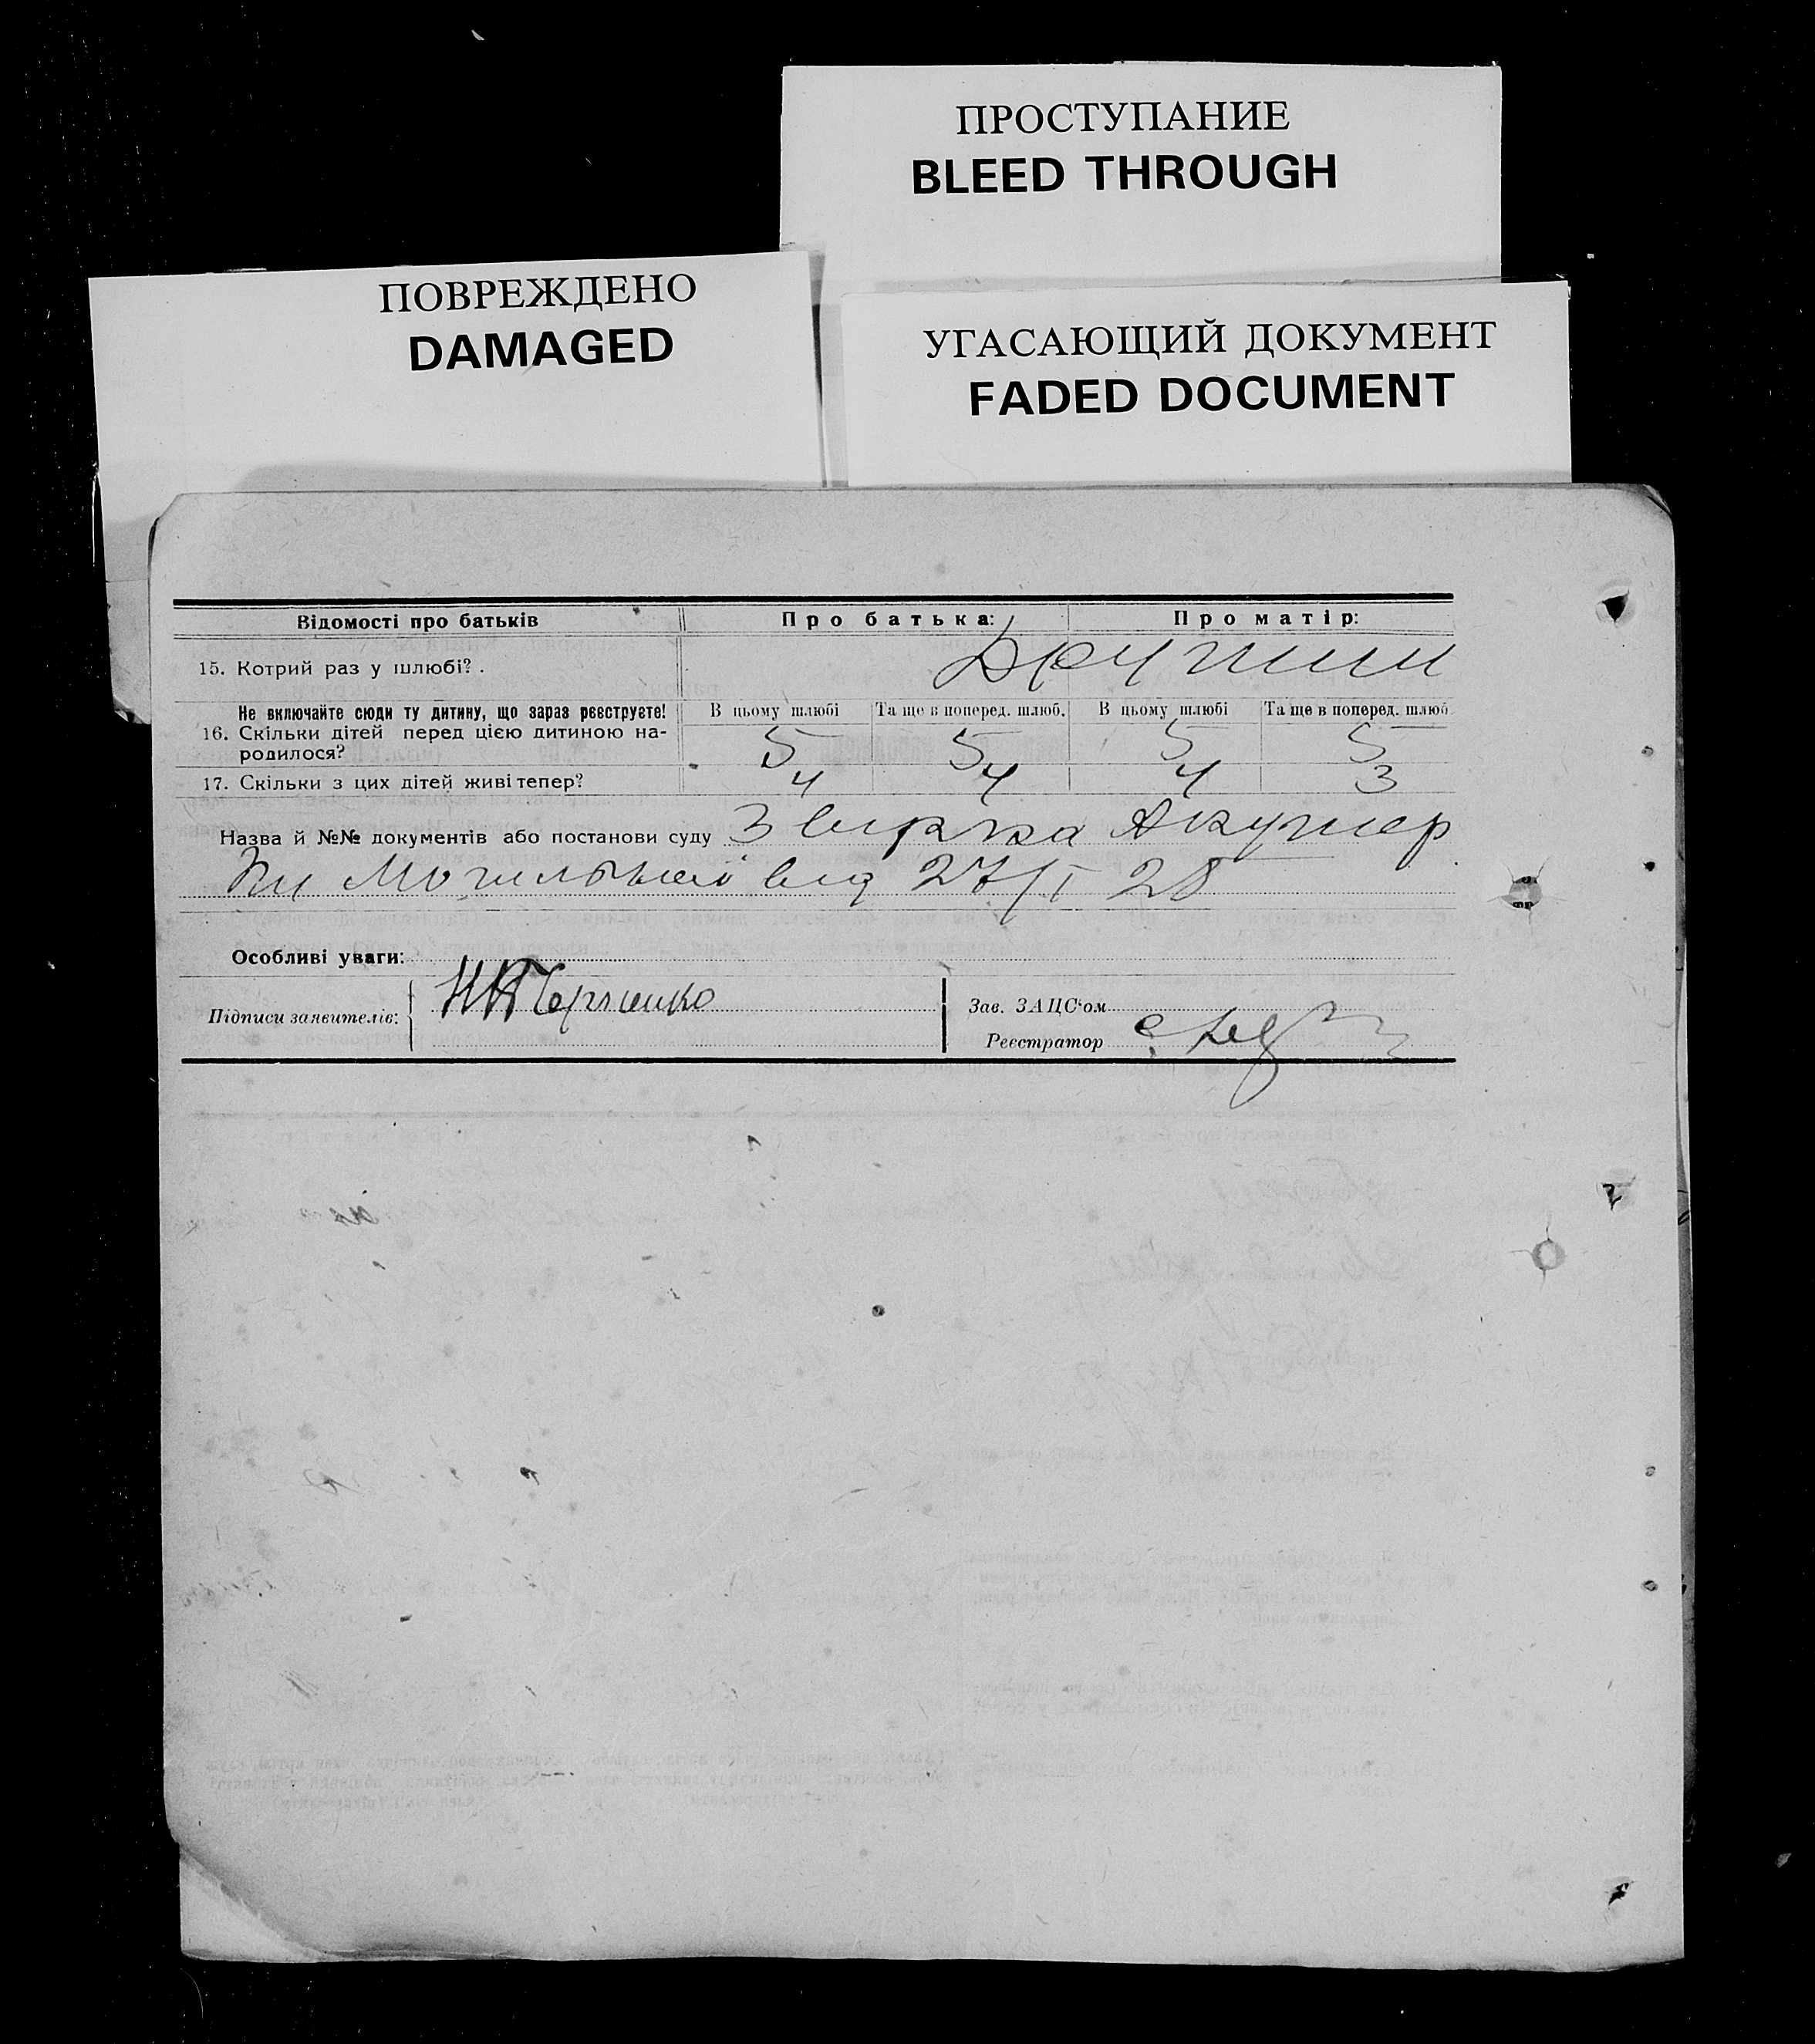 ПРОСТУПАНИЕ
BLEED THROUGH
ПОВРЕЖДЕНО
DAMAGED
УГАСАЮЩИЙ ДОКУМЕНТ
FADED DOCUMENT
Відомості про батьків Про батька: Про матір:
15. Котрий раз у шлюбі?
Не включайте сюди ту дитину, що зараз реєструєте! В цьому шлюбі Та ще в поперед. шлюб. В цьому шлюбі Та ще в поперед. шлюб
16. Скільки дітей перед цією дитиною на-
родилося? 5 5 5 5
17. Скільки з цих дітей живі тепер? 4 4 4 3
Назва й №№ документів або постанови суду Акушер
ки Могильної від 27/I 28
Особливі уваги:
Підписи заявителів:
Зав. ЗАЦС'ом
Реєстратор